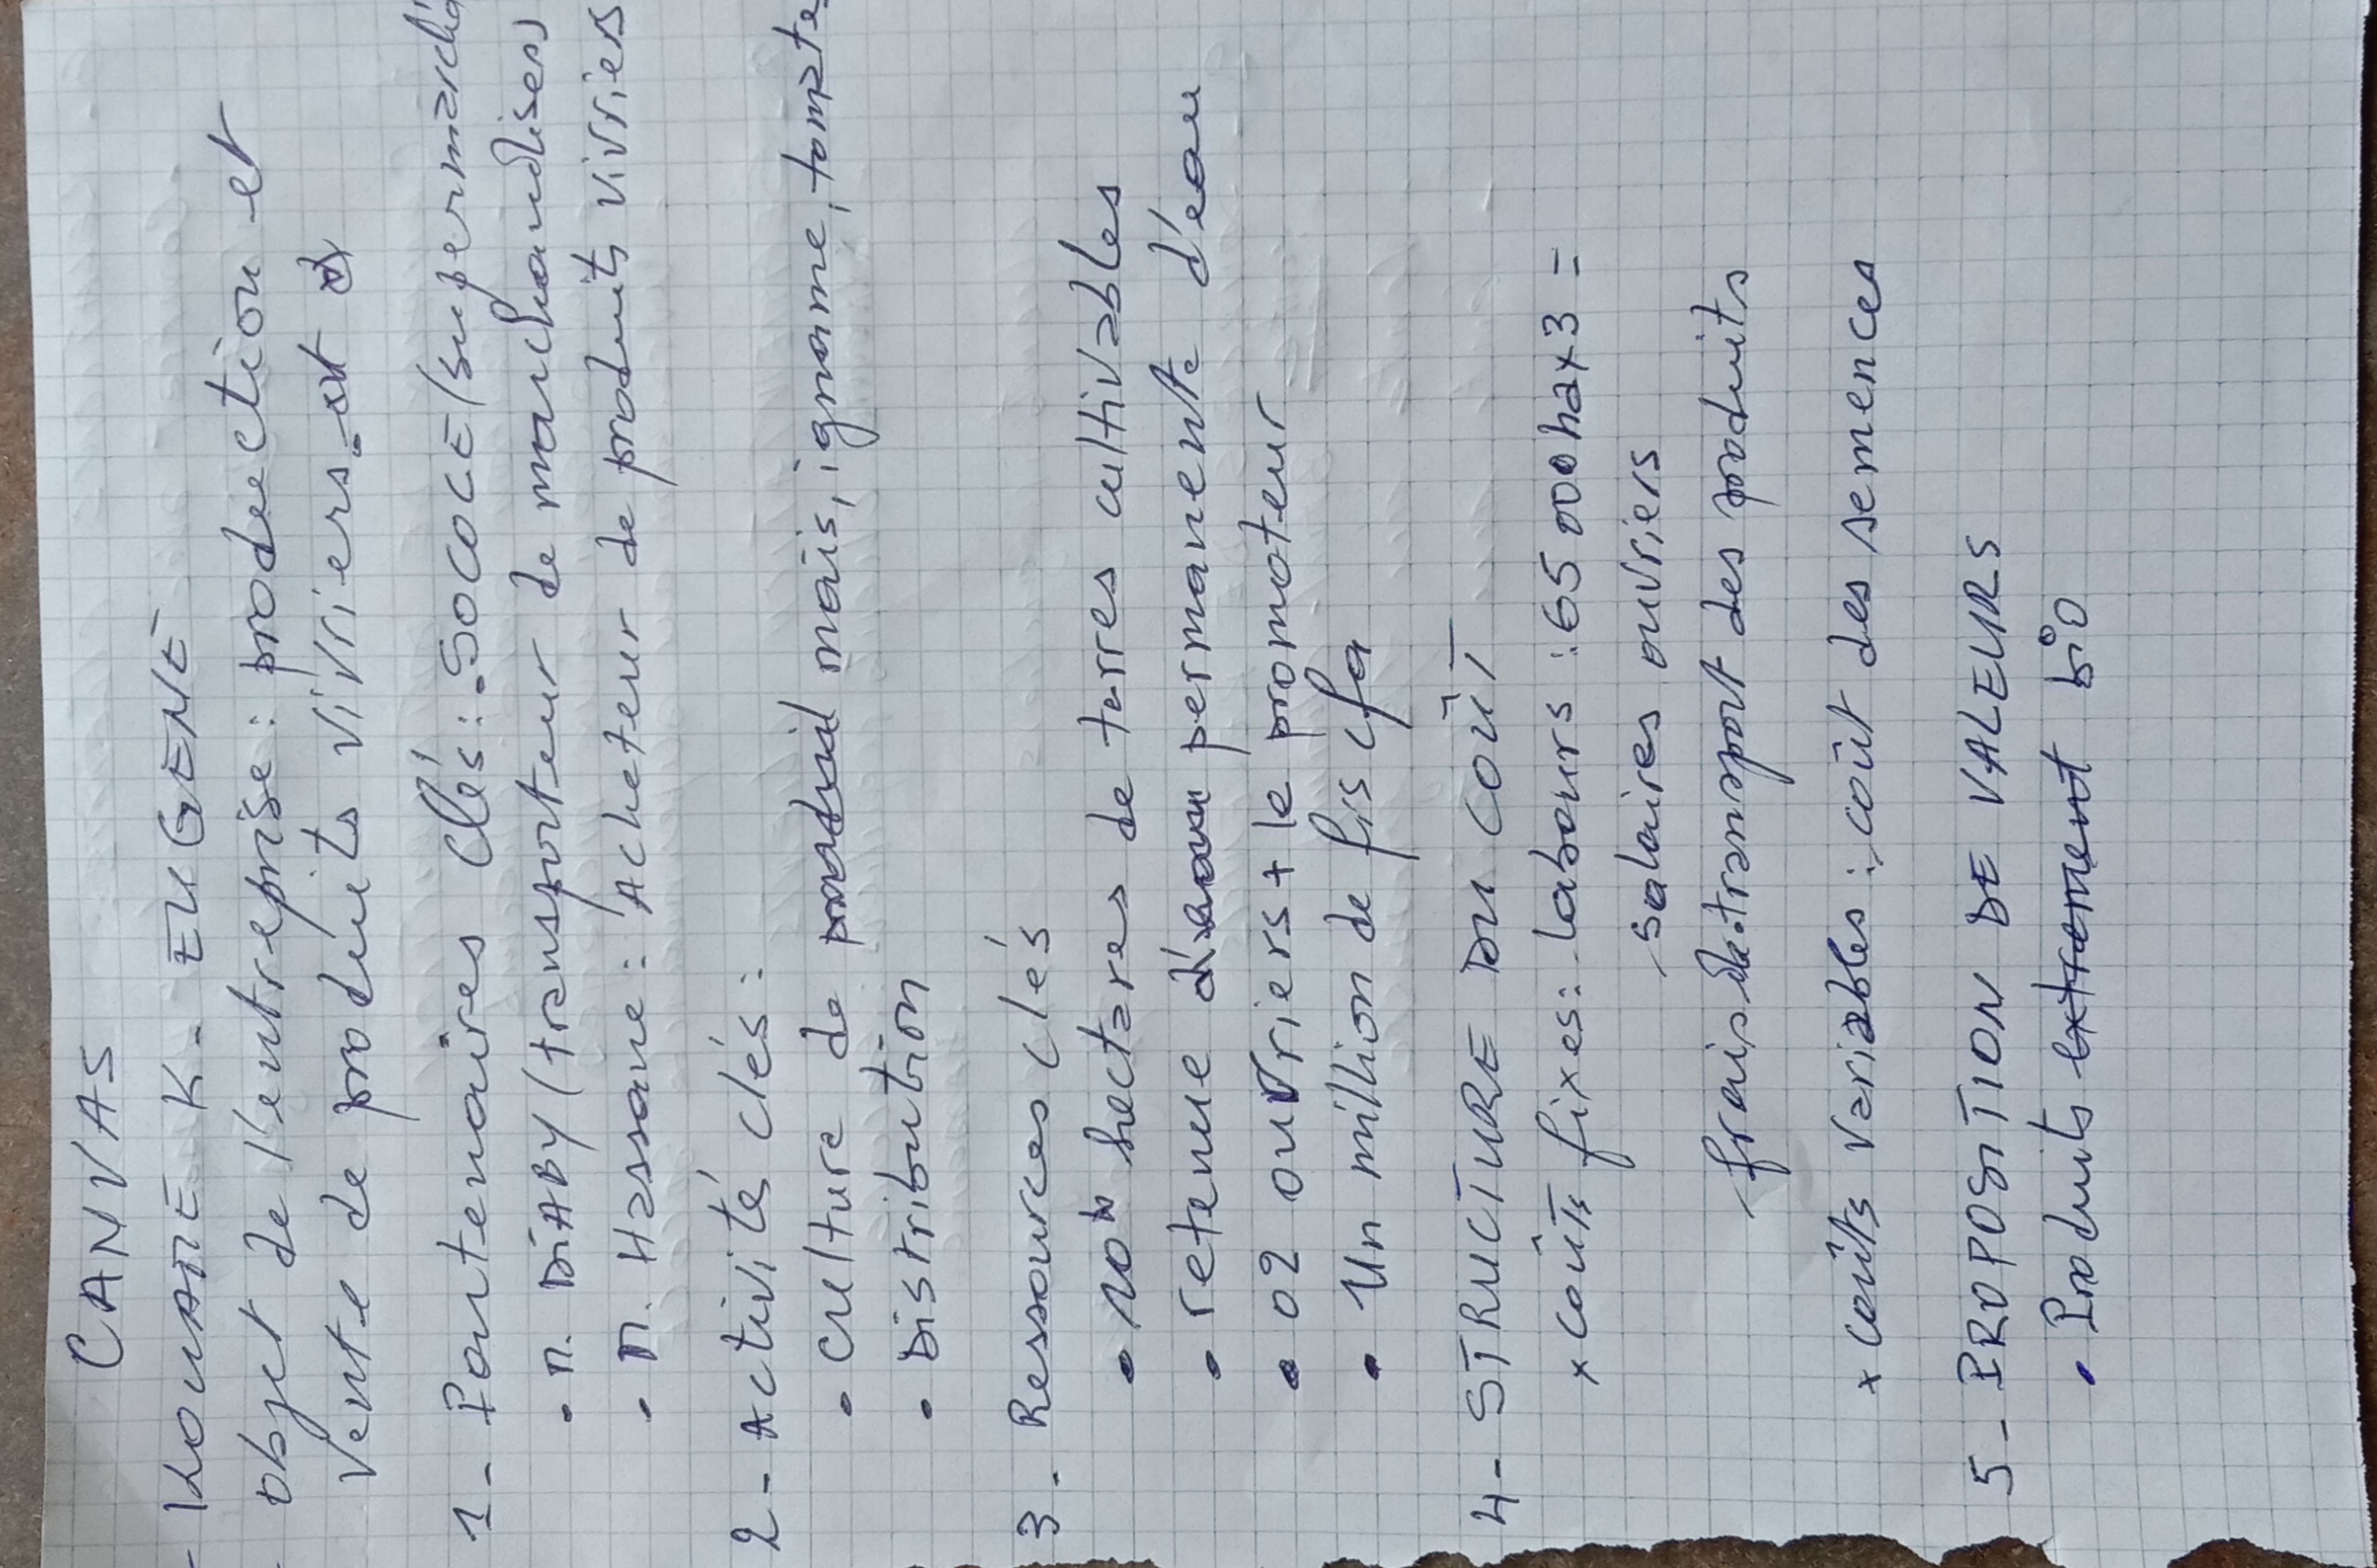 CANVAS
- KOUAME K. EUGENE
- objet de l'entreprise: production et
vente de produits vivriers
1- Partenaires clés: .SOCOCE (supermarché
• M. DIABY (transporteur de marchandises)
• M. Hassane: Acheteur de produits vivries
2- Activité clés:
• culture de maïs, igname, tomate
• Distribution
3- Ressources clés
• hectares de terres cultivables
• retenue permanente d'eau
• 02 ouvriers + le promoteur
• Un million de frs cfa
4- STRUCTURE DU COÛT
x coûts fixes: - labours : 65 000 hax3 =
- salaires ouvriers
- frais de transport des produits
x coûts variables : coût des semences
5- PROPOSITION DE VALEURS
• Produits bio